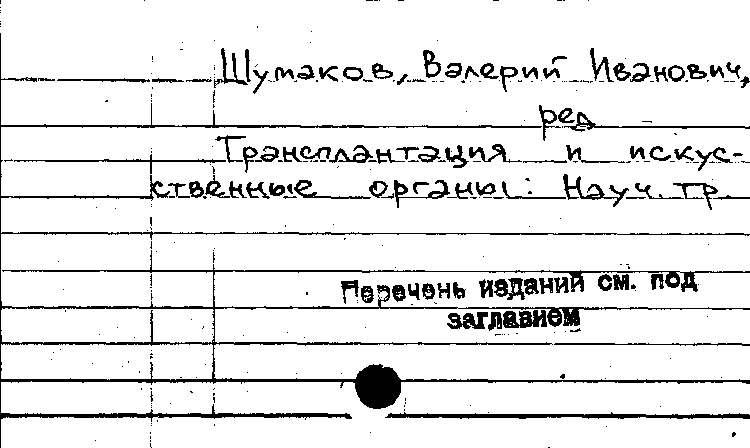 Шумаков, Валерий Иванович,
ред
Трансплантация и искус-
ственные органы: Науч. тр.
Перечень изданий см. под
заглавием